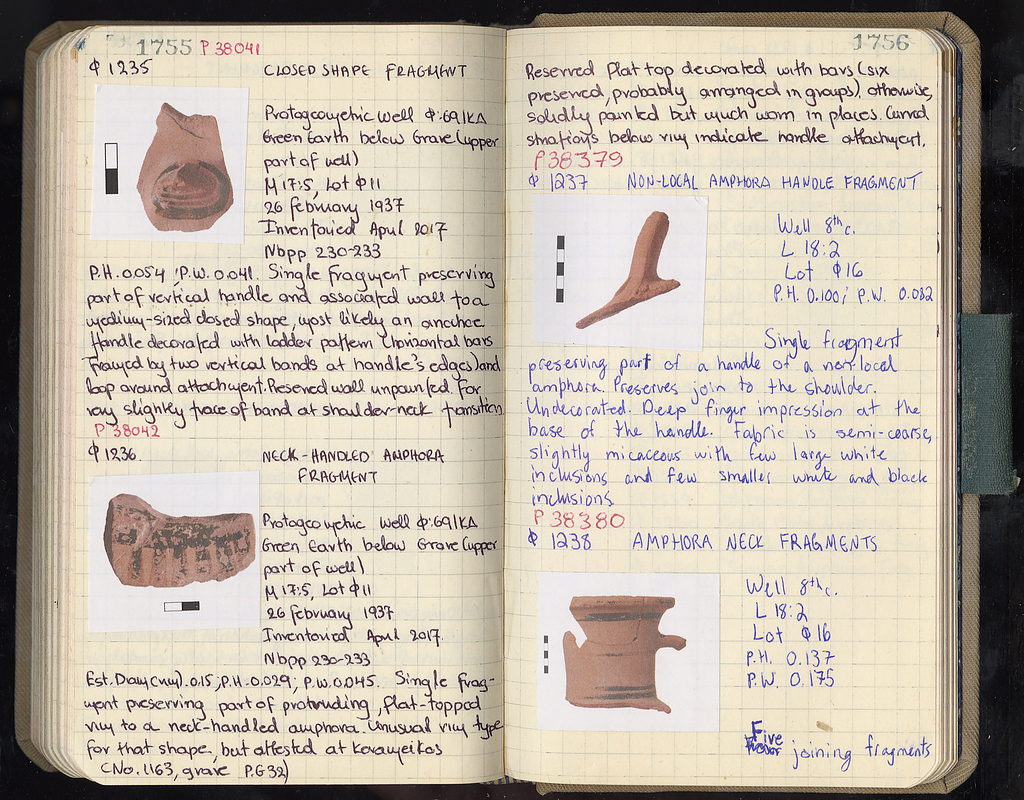 1755 P 38041
Φ 1235 CLOSED SHAPE FRAGMENT
Protogeometric Well Φ:69/ΚΔ
Green Earth below Grave (upper
part of well)
M 17:5, Lot Φ11
26 february 1937
Inventoried April 2017
Nbpp 230-233
P.H. 0.054; P.W. 0.041. Single fragment preserving
part of vertical handle and associated wall to a
medium-sized closed shape, most likely an
Handle decorated with ladder pattern (horizontal bars
framed by two vertical bands at handle's edges) and
loop around attachment. Reserved wall unpainted for
very slightly trace of band at shoulder-neck transition
P 38042
Φ 1236. NECK-HANDLED AMPHORA
FRAGMENT
Protogeometric Well Φ:69/ΚΔ
Green Earth below Grave (upper
part of well)
M 17:5, Lot Φ11
26 february 1937
Inventoried April 2017.
Nbpp 230-233
Est. Diam (rim) 0.15; P.H. 0.029; P.W. 0.045. Single frag-
ment preserving part of protruding, flat-topped
rim to a neck-handled amphora. Unusual rim type
for that shape, but attested at Kerameikos
(No. 1163, grave PG32)
1756
Reserved flat top decorated with bars (six
preserved, probably arranged in groups), otherwise,
solidly painted but much worn in places. Curved
striations below rim indicate handle attachment.
P38379
Φ 1237 NON-LOCAL AMPHORA HANDLE FRAGMENT
Well 8th c.
L 18:2
Lot Φ16
P.H. 0.100; P.W. 0.082
Single fragment
preserving part of a handle of a non-local
amphora. Preserves join to the shoulder.
Undecorated. Deep finger impression at the
base of the handle. Fabric is semi-coarse,
slightly micaceous with few large white
inclusions and few smaller white and black
inclusions
P 38380
Φ 1238 AMPHORA NECK FRAGMENTS
Well 8th c.
L 18:2
Lot Φ16
P.H. 0.137
P.W. 0.175
Five
joining fragments